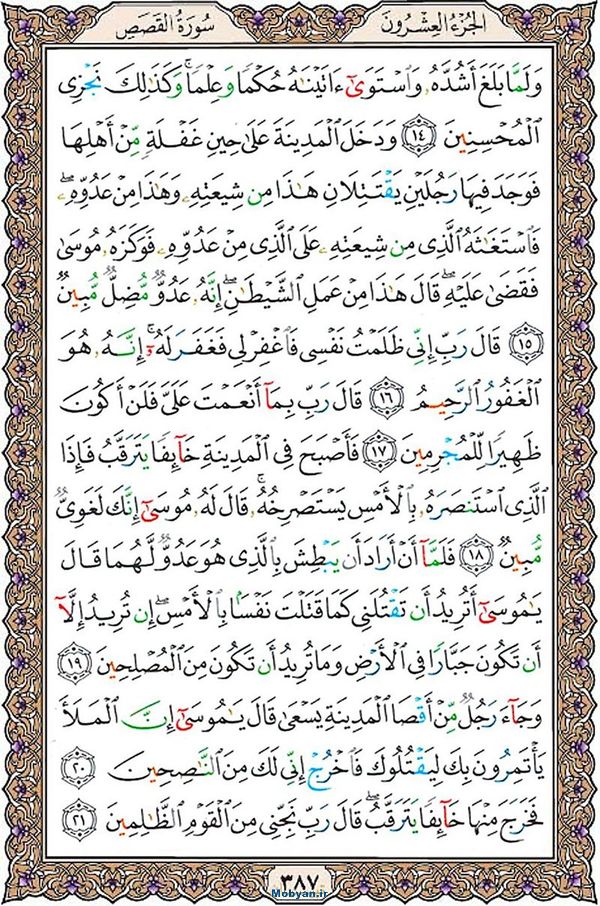 الجزء العشرون
سورة القصص
وَلَمَّا بَلَغَ أَشُدَّهُۥ وَٱسْتَوَىٰٓ ءَاتَيْنَٰهُ حُكْمًا وَعِلْمًا ۚ وَكَذَٰلِكَ نَجْزِى
ٱلْمُحْسِنِينَ ﴿١٤﴾ وَدَخَلَ ٱلْمَدِينَةَ عَلَىٰ حِينِ غَفْلَةٍ مِّنْ أَهْلِهَا
فَوَجَدَ فِيهَا رَجُلَيْنِ يَقْتَتِلَانِ هَٰذَا مِن شِيعَتِهِۦ وَهَٰذَا مِنْ عَدُوِّهِۦ ۖ
فَٱسْتَغَٰثَهُ ٱلَّذِى مِن شِيعَتِهِۦ عَلَى ٱلَّذِى مِنْ عَدُوِّهِۦ فَوَكَزَهُۥ مُوسَىٰ
فَقَضَىٰ عَلَيْهِ ۖ قَالَ هَٰذَا مِنْ عَمَلِ ٱلشَّيْطَٰنِ ۖ إِنَّهُۥ عَدُوٌّ مُّضِلٌّ مُّبِينٌ
﴿١٥﴾ قَالَ رَبِّ إِنِّى ظَلَمْتُ نَفْسِى فَٱغْفِرْ لِى فَغَفَرَ لَهُۥٓ ۚ إِنَّهُۥ هُوَ
ٱلْغَفُورُ ٱلرَّحِيمُ ﴿١٦﴾ قَالَ رَبِّ بِمَآ أَنْعَمْتَ عَلَىَّ فَلَنْ أَكُونَ
ظَهِيرًا لِّلْمُجْرِمِينَ ﴿١٧﴾ فَأَصْبَحَ فِى ٱلْمَدِينَةِ خَآئِفًا يَتَرَقَّبُ فَإِذَا
ٱلَّذِى ٱسْتَنصَرَهُۥ بِٱلْأَمْسِ يَسْتَصْرِخُهُۥ ۚ قَالَ لَهُۥ مُوسَىٰٓ إِنَّكَ لَغَوِىٌّ
مُّبِينٌ ﴿١٨﴾ فَلَمَّآ أَنْ أَرَادَ أَن يَبْطِشَ بِٱلَّذِى هُوَ عَدُوٌّ لَّهُمَا قَالَ
يَٰمُوسَىٰٓ أَتُرِيدُ أَن تَقْتُلَنِى كَمَا قَتَلْتَ نَفْسًۢا بِٱلْأَمْسِ ۖ إِن تُرِيدُ إِلَّآ
أَن تَكُونَ جَبَّارًا فِى ٱلْأَرْضِ وَمَا تُرِيدُ أَن تَكُونَ مِنَ ٱلْمُصْلِحِينَ ﴿١٩﴾
وَجَآءَ رَجُلٌ مِّنْ أَقْصَا ٱلْمَدِينَةِ يَسْعَىٰ قَالَ يَٰمُوسَىٰٓ إِنَّ ٱلْمَلَأَ
يَأْتَمِرُونَ بِكَ لِيَقْتُلُوكَ فَٱخْرُجْ إِنِّى لَكَ مِنَ ٱلنَّٰصِحِينَ ﴿٢٠﴾
فَخَرَجَ مِنْهَا خَآئِفًا يَتَرَقَّبُ ۖ قَالَ رَبِّ نَجِّنِى مِنَ ٱلْقَوْمِ ٱلظَّٰلِمِينَ ﴿٢١﴾
٣٨٧
Mobyan.ir